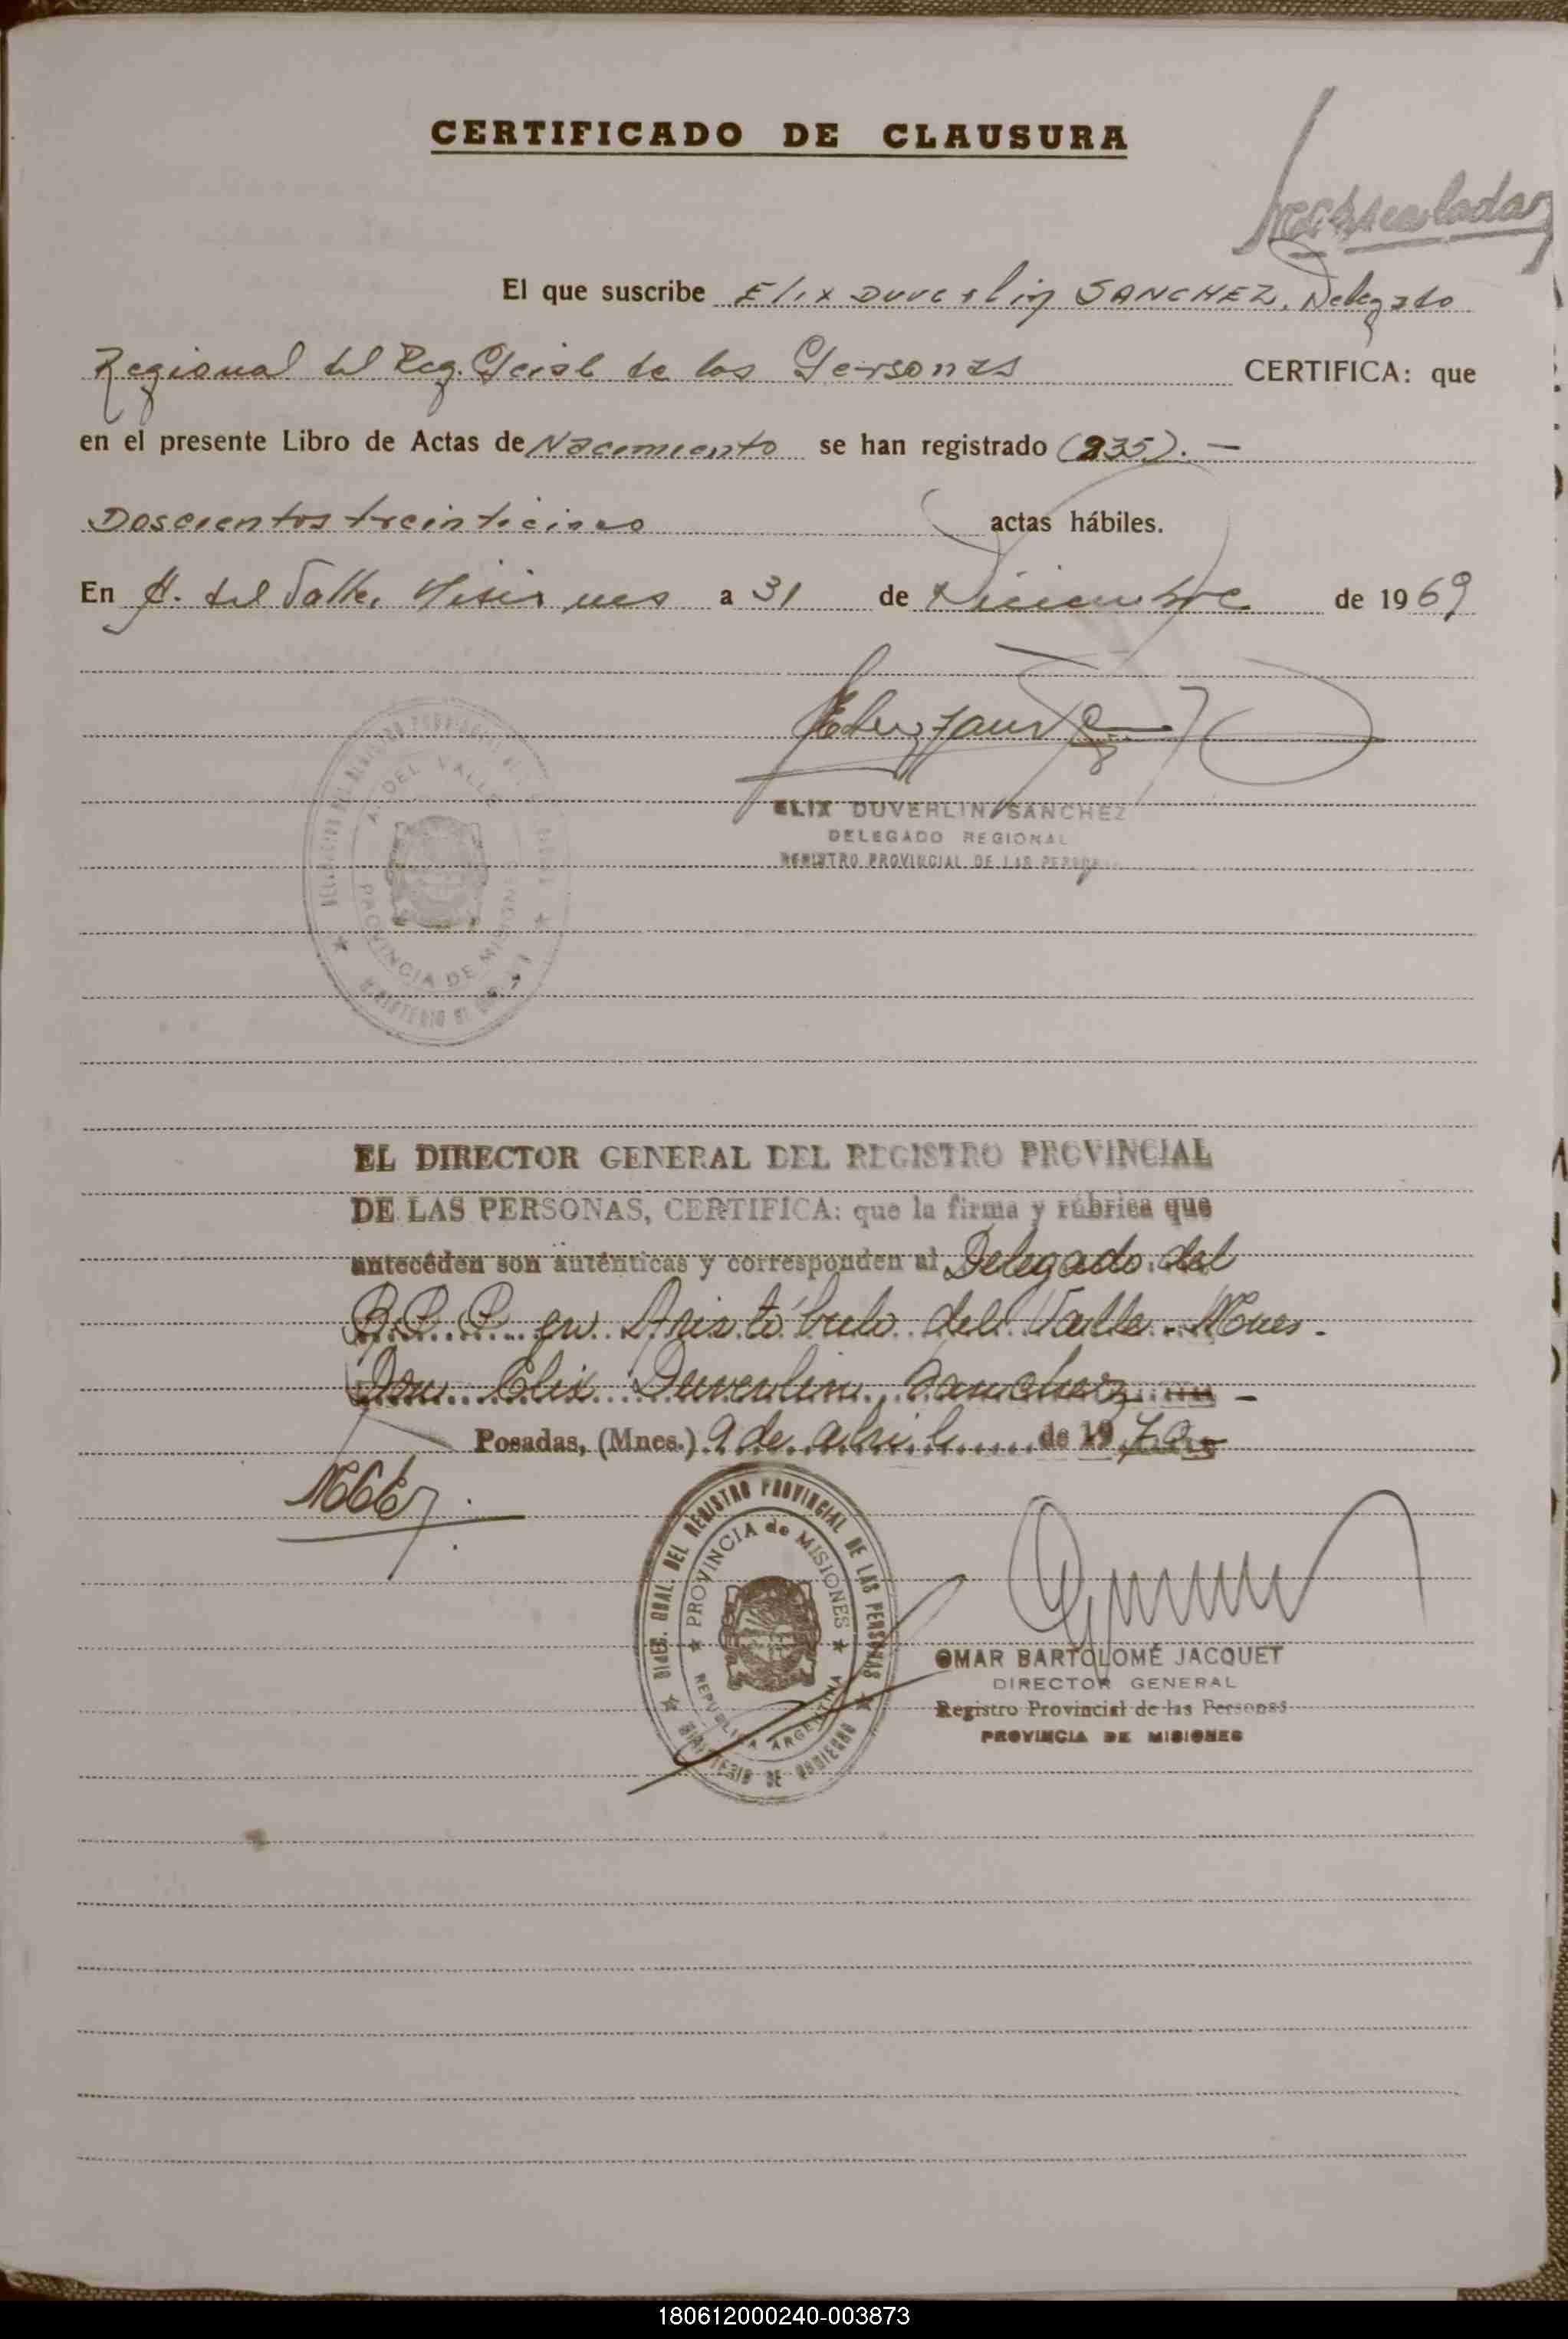 CERTIFICADO DE CLAUSURA
El que suscribe Elix Duverlin SANCHEZ, Delegado
Regional del Reg. de las Personas CERTIFICA: que
en el presente Libro de Actas de Nacimiento se han registrado (235). —
Doscientos treinticinco actas hábiles.
En A. del Valle, Misiones a 31 de Diciembre de 1969
A. DEL VALLE
PROVINCIA DE MISIONES
ELIX DUVERLIN SANCHEZ
DELEGADO REGIONAL
REGISTRO PROVINCIAL DE LAS PERSONAS
EL DIRECTOR GENERAL DEL REGISTRO PROVINCIAL
DE LAS PERSONAS, CERTIFICA: que la firma y rúbrica que
anteceden son auténticas y corresponden al Delegado del
R.P.P. en Aristóbulo del Valle - Mnes.
Don Elix Duverlin Sanchez -
Posadas, (Mnes.) 9 de abril de 1970
DIREC. GRAL. DEL REGISTRO PROVINCIAL DE LAS PERSONAS
PROVINCIA de MISIONES
REPUBLICA ARGENTINA
MINISTERIO DE GOBIERNO
OMAR BARTOLOMÉ JACQUET
DIRECTOR GENERAL
Registro Provincial de las Personas
PROVINCIA DE MISIONES
180612000240-003873